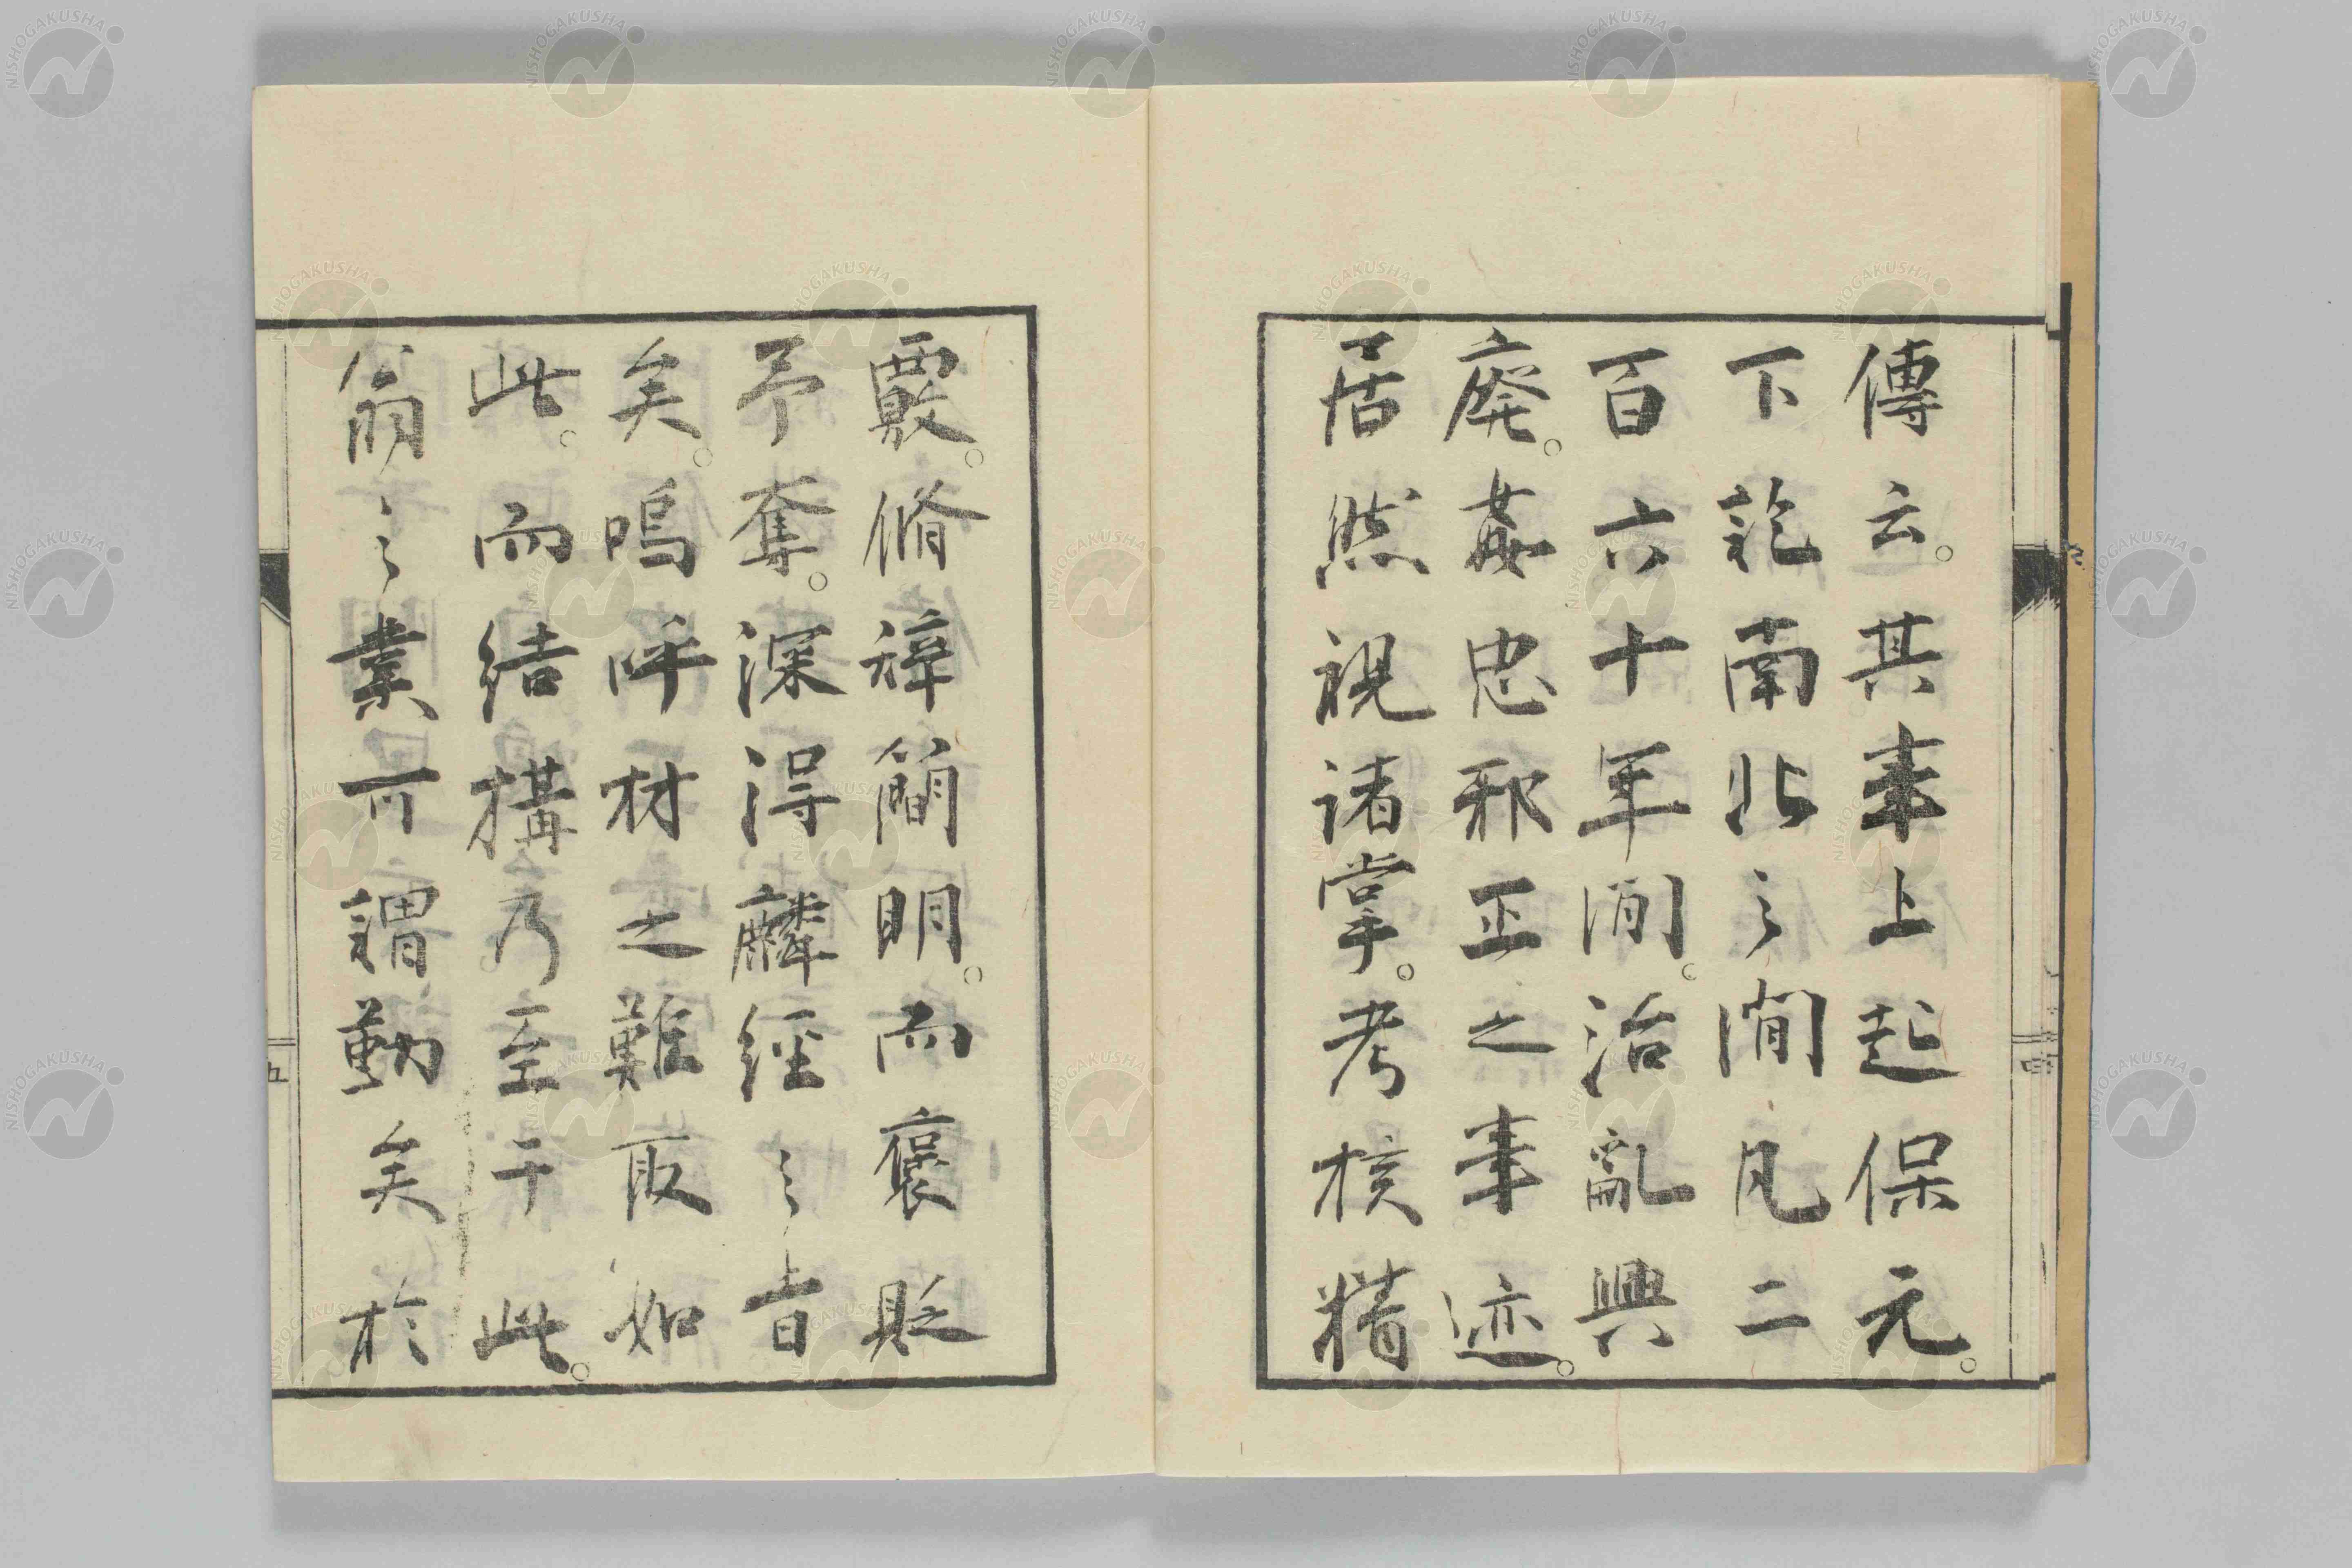 傳云。其事上起保元。
下訖南北之間凡二
百六十年間。治亂興
廃。姦忠邪正之事迹。
居然視諸掌。考核精
覈。脩辞簡明。而褒貶
予奪。深得麟經之旨
矣。嗚呼材之難取如
此。而結構乃至于此。
翁之業可謂勤矣於
四
五
NISHOGAKUSHA